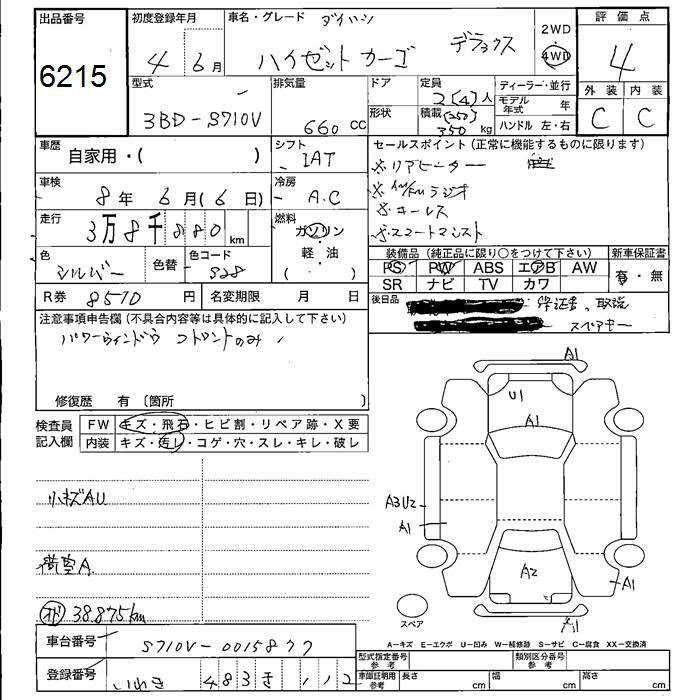 出品番号 6215
初度登録年月 4 6月
車名・グレード ダイハツ
ハイゼットカーゴ デラックス
2WD
4WD
評価点 4
外装 内装
C C
型式 3BD-S710V
排気量 660 CC
ドア
定員 2(4)人
形状
積載 (250) 350 kg
ディーラー・並行
モデル年式 年
ハンドル 左・右
車歴 自家用・( )
シフト IAT
セールスポイント (正常に機能するものに限ります)
※リアヒーター
※AM/FMラジオ
※キーレス
※スマートアシスト
車検 8年 6月(6日)
冷房 A.C
走行 3万8千880km
燃料 ガソリン・軽油
( )
色 シルバー
色替
色コード S28
装備品 (純正品に限り○をつけて下さい)
新車保証書
PS PW ABS エアB AW
SR ナビ TV カワ
有・無
R券 8570円
名変期限 月 日
後日品 保証書、取説
スペアキー
注意事項申告欄 (不具合内容等は具体的に記入して下さい)
パワーウィンドウ フロントのみ
修復歴 有 〔箇所 〕
検査員記入欄
FW キズ・飛石・ヒビ割・リペア跡・X要
内装 キズ・汚レ・コゲ・穴・スレ・キレ・破レ
小キズAU
荷室A
オド 38.875km
A1
U1
A1
A3U2
A1
A2
A1
A1
スペア
A-キズ E-エクボ U-凹み W-補修跡 S-サビ C-腐食 XX-交換済
車台番号 S710V-0015877
登録番号 いわき 483 き 112
型式指定番号 参考
類別区分番号 参考
車庫証明用 参考
長さ cm
幅 cm
高さ cm